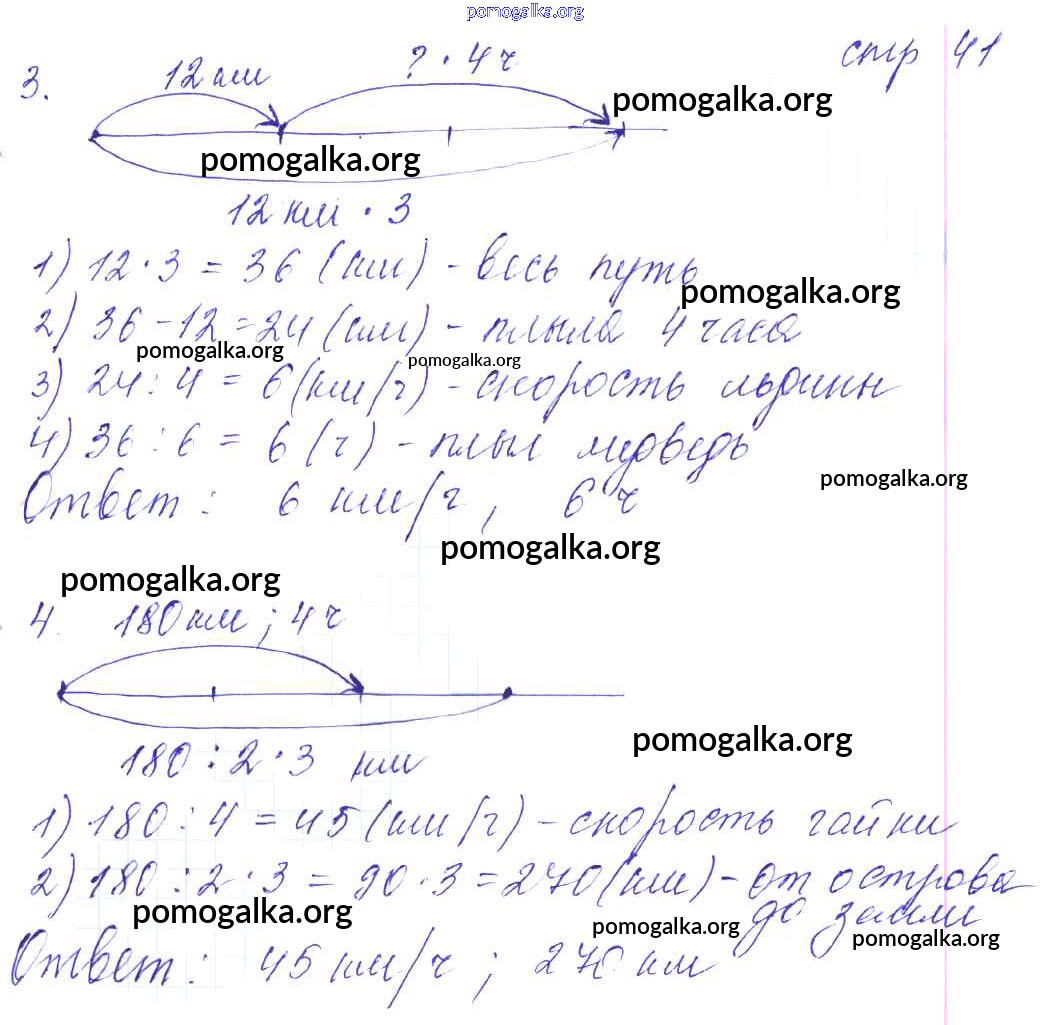 pomogalka.org
стр 41
3. 12 км ? · 4 ч
pomogalka.org
pomogalka.org
12 км · 3
1) 12 · 3 = 36 (км) - весь путь
pomogalka.org
2) 36 - 12 = 24 (км) - плыла 4 часа
pomogalka.org pomogalka.org
3) 24 : 4 = 6 (км/ч) - скорость льдины
4) 36 : 6 = 6 (ч) - плыл медведь
pomogalka.org
Ответ : 6 км/ч , 6 ч
pomogalka.org
pomogalka.org
4. 180 км ; 4 ч
pomogalka.org
180 : 2 · 3 км
1) 180 : 4 = 45 (км/ч) - скорость чайки
2) 180 : 2 · 3 = 90 · 3 = 270 (км) - от острова
до земли
pomogalka.org pomogalka.org pomogalka.org
Ответ : 45 км/ч ; 270 км